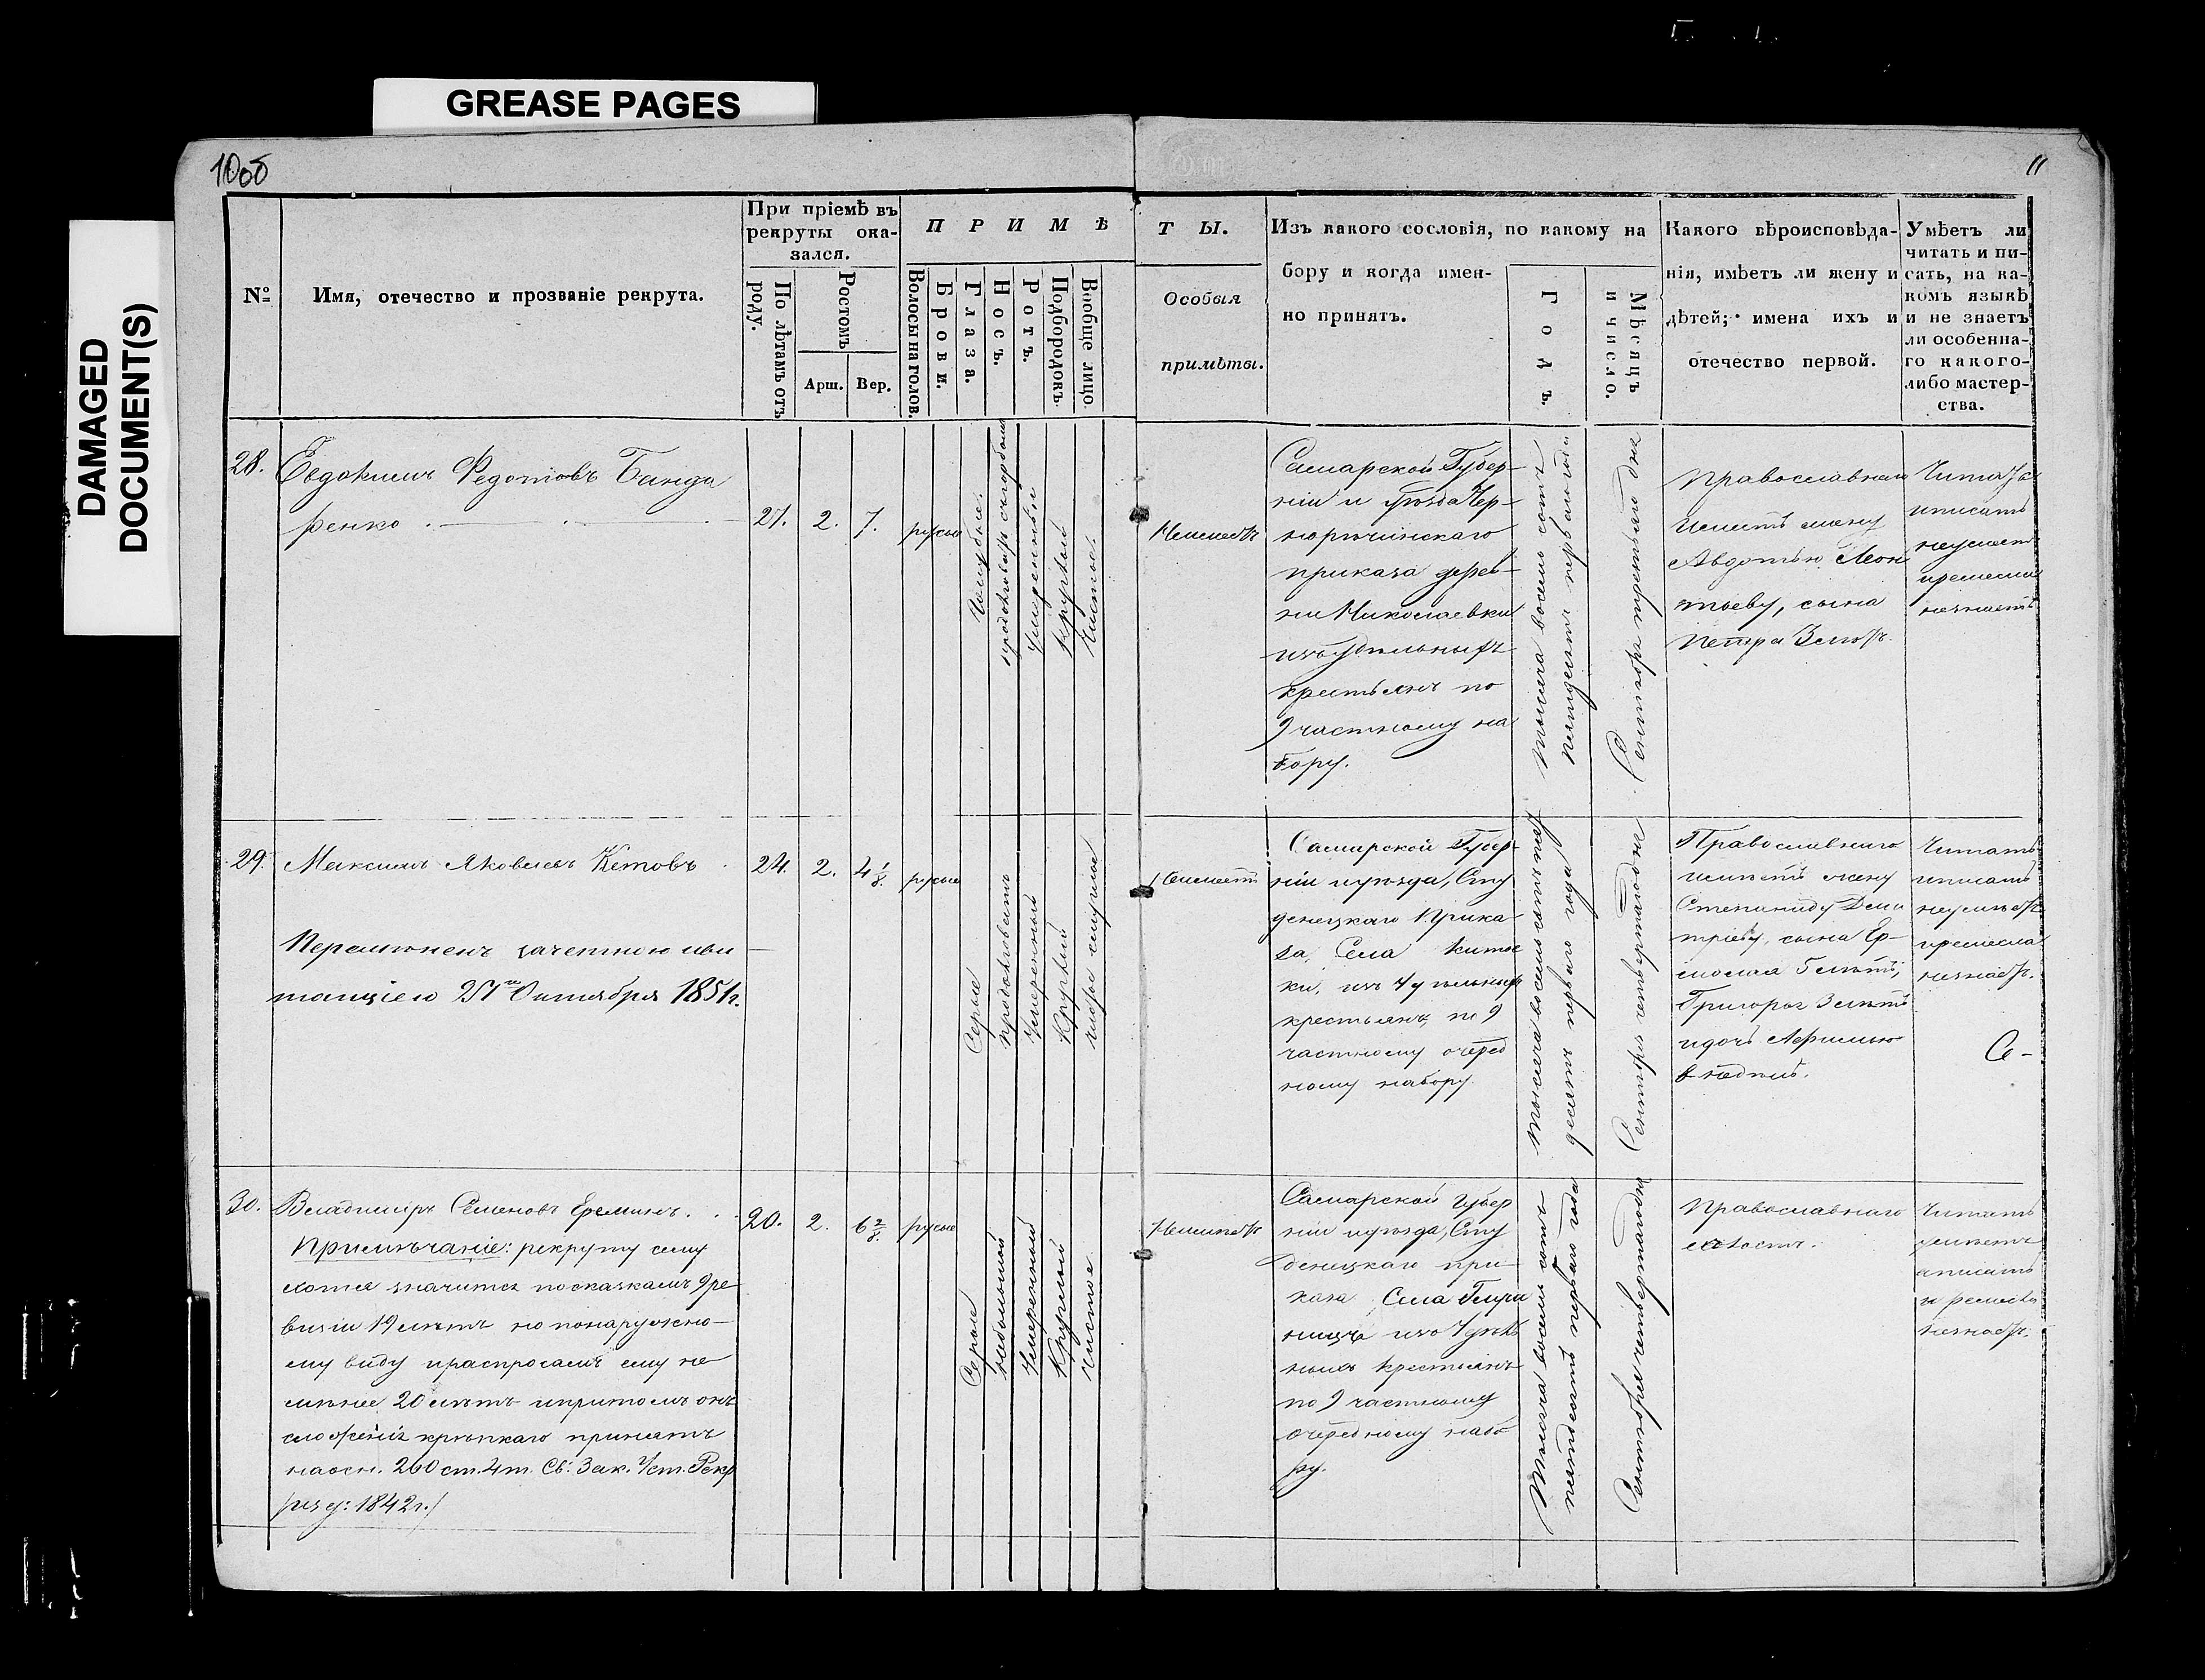 GREASE PAGES
DAMAGED
DOCUMENT(S)
10об
11
№
Имя, отечество и прозваніе рекрута.
При пріемѣ въ
рекруты ока-
зался.
По лѣтамъ отъ
роду.
Ростомъ
Арш.
Вер.
П Р И М Ѣ
Волосы на голов.
Брови.
Глаза.
Носъ.
Ротъ.
Подбородокъ.
Вообще лицо.
Т Ы.
Особыя
примѣты.
Изъ какого сословія, по какому на
бору и когда имен-
но принятъ.
Годъ.
Мѣсяцъ
и число.
Какого вѣроисповѣда-
нія, имѣетъ ли жену и
дѣтей; имена ихъ и
отечество первой.
Умѣетъ ли
читать и пи-
сать, на ка-
комъ языкѣ
и не знаетъ
ли особенна-
го какого-
либо мастер-
ства.
28.
Евдокимъ Федотовъ Банда
ренко
27.
2.
7.
русые
Голубые.
Умеренный
Круглый
Чистое.
Неимеетъ
Самарской Губер-
ніи и уѣзда Чер-
норѣчинскаго
приказа дерев-
ни Николаевки
изъ удѣльныхъ
крестьянъ по
9 частному на
бору.
тысяча восемь сотъ
пятдесятъ перваго года
Сентября третьяго дня
Православнаго
имеетъ жену
Авдотью Леон
тьеву, сына
Петра 3 летъ.
Читать
иписать
неумеетъ
иремесла
незнаетъ
29.
Максимъ Яковлевъ Кетовъ
24.
2.
4 1/8.
русые
Перемѣненъ зачетною кви
танціею 25го Октября 1851г.
Серые
продолговатъ
Умеренный
Круглый
чистое смуглое
Неимеетъ
Самарской Губер-
ніи иуѣзда, Сту
денецкаго Прика
за, Села
ки, изъ Удѣльныхъ
крестьянъ, по 9
частному очеред
ному набору.
тысяча восемьсотъ пят
десятъ перваго года
Сентября четвертаго дня
Православнаго
имѣетъ жену
Степаниду Дми
тріеву, сына Ер-
молая 5 лѣтъ,
Григорья 3 лѣтъ
идочь Афимью
Читать
иписать
неумѣетъ
иремесла
незнаетъ.
30.
Владимиръ Семеновъ Ереминъ.
20.
2.
6 2/8.
русые
Примѣчаніе: рекруту сему
хотя значится посказкамъ 9 ре
визіи 19 лѣтъ но понаружно-
му виду ираспросамъ ему не
мѣнее 20 лѣтъ ипритомъ онъ
сложенія крѣпкаго принятъ
наосн. 260 ст. 4т. Св: Зак. Уст. Рекр
изд: 1842г./
Серые
небольшой
Умеренный
Круглый
чистое
Неимѣетъ
Самарской Губер
ніи иуѣзда, Сту
денецкаго при-
каза Села
изъ Удѣль
ныхъ крестьянъ
по 9 частному
очередному набо
ру.
Тысяча восемь сотъ
пятдесятъ перваго года
Сентября четвертаго дня
Православнаго
холостъ.
Читать
умѣетъ
аписать
и ремесла
незнаетъ.